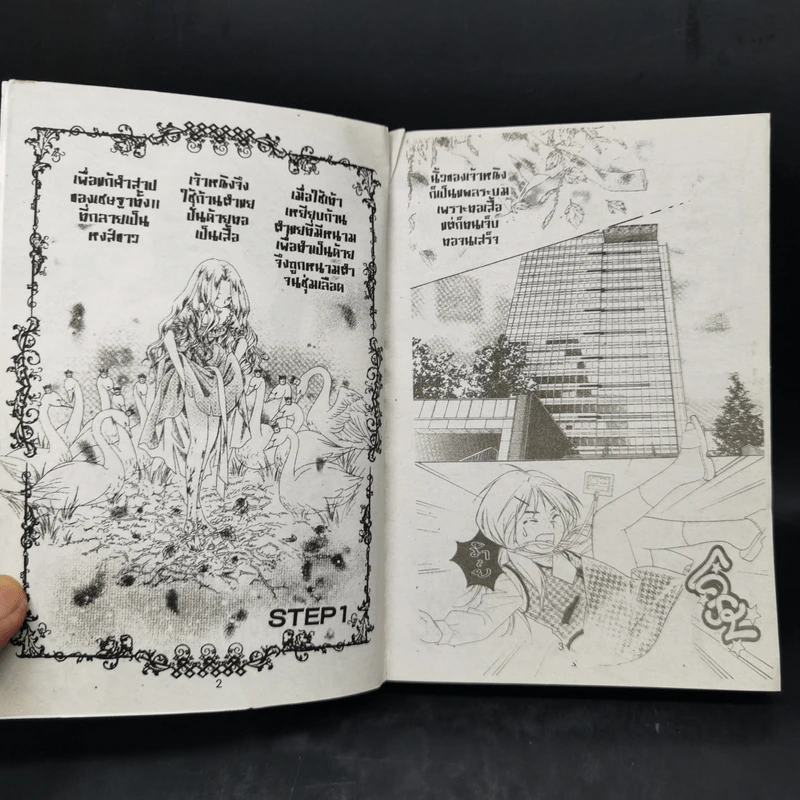 เมื่อใช้เท้า
เหยียบก้าน
ตำแยที่มีหนาม
เพื่อทำเป็นด้าย
จึงถูกหนามตำ
จนชุ่มเลือด
เจ้าหญิงจึง
ใช้ก้านตำแย
ปั่นด้ายทอ
เป็นเสื้อ
เพื่อแก้คำสาป
ของเชษฐาทั้ง11
ที่กลายเป็น
หงส์ขาว
STEP1
2
นิ้วของเจ้าหญิง
ก็เป็นแผลระบม
เพราะทอเสื้อ
แต่ก็ทนเจ็บ
ทอจนเสร็จ
3